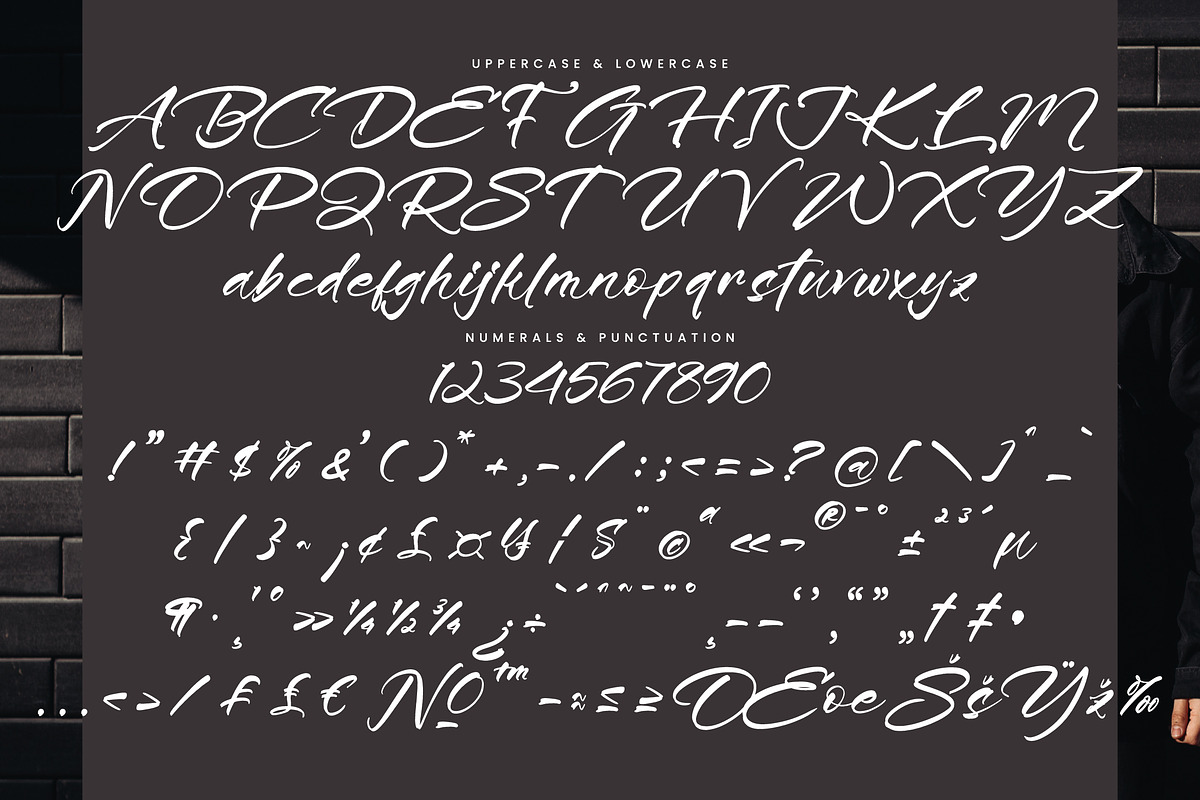 UPPERCASE & LOWERCASE
ABCDEFGHIJKLM
NOPQRSTUVWXYZ
abcdefghijklmnopqrstuvwxyz
NUMERALS & PUNCTUATION
1234567890
!"#$%&'()*+,-./:;<=>?@[\]^_`
{|}~¡¢£¤¥¦§¨©ª«¬®¯°±²³´µ
¶·¸¹º»¼½¾¿÷`´ˆ˜¯¨°¸–—‘’‚“”„†‡•
...‹›⁄₣₤€№™−≈≤≥ŒœŠšŸž‰